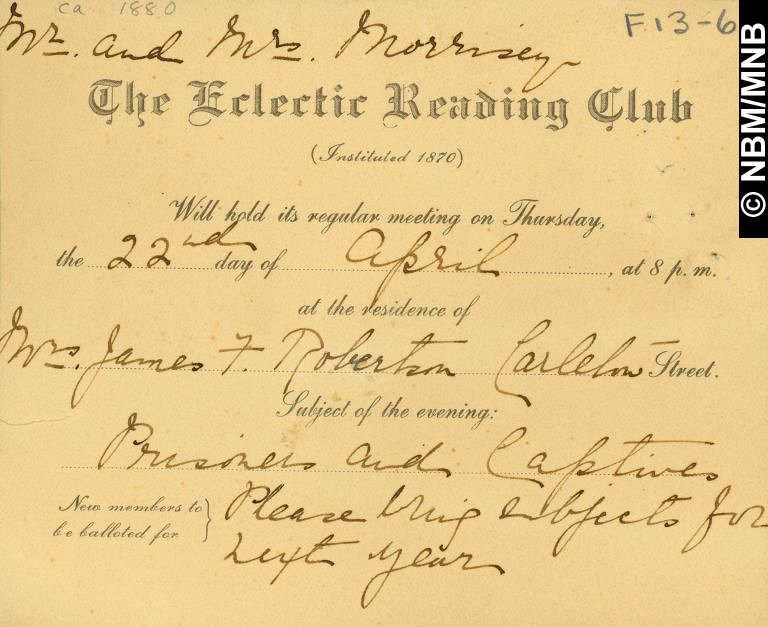 ca 1880
F13-6
© NBM/MNB
Mr. and Mrs. Morrisey
The Eclectic Reading Club
(Instituted 1870)
Will hold its regular meeting on Thursday,
the 22nd day of April, at 8 p. m.
at the residence of
Mrs. James F. Robertson Carleton Street.
Subject of the evening:
Prisoners and Captives
New members to
be balloted for } Please bring subjects for
next year